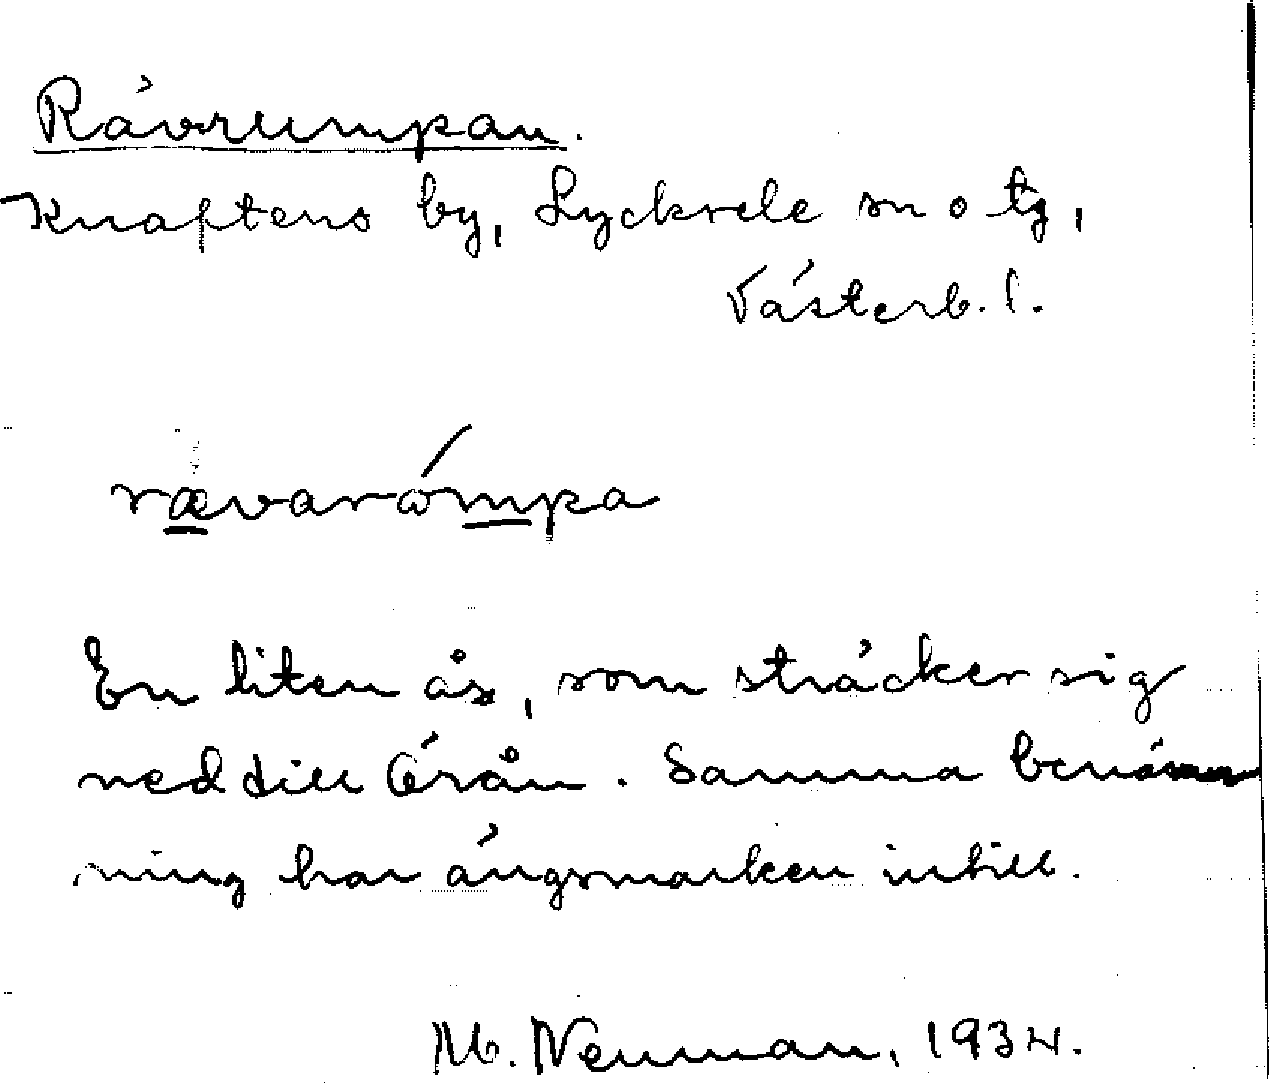 Rävrumpan.
Knaftens by, Lycksele sn o tg,
Västerb. l.
rævarώmpa
En liten ås, som sträcker sig
ned till Örån. Samma benäm
ning har ängsmarken intill.
M. Neuman, 1934.